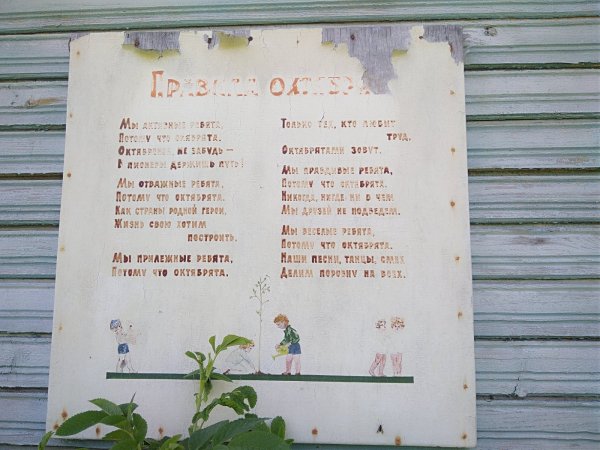 Правила октябр
Мы активные ребята,
Потому что октябрята.
Октябренок, не забудь –
В пионеры держишь путь!
Мы отважные ребята,
Потому что октябрята.
Как страны родной герои,
Жизнь свою хотим
построить.
Мы прилежные ребята,
Потому что октябрята.
Только тех, кто любит
труд,
Октябрятами зовут.
Мы правдивые ребята,
Потому что октябрята.
Никогда, нигде, ни в чем
Мы друзей не подведем.
Мы веселые ребята,
Потому что октябрята.
Наши песни, танцы, смех
Делим поровну на всех.